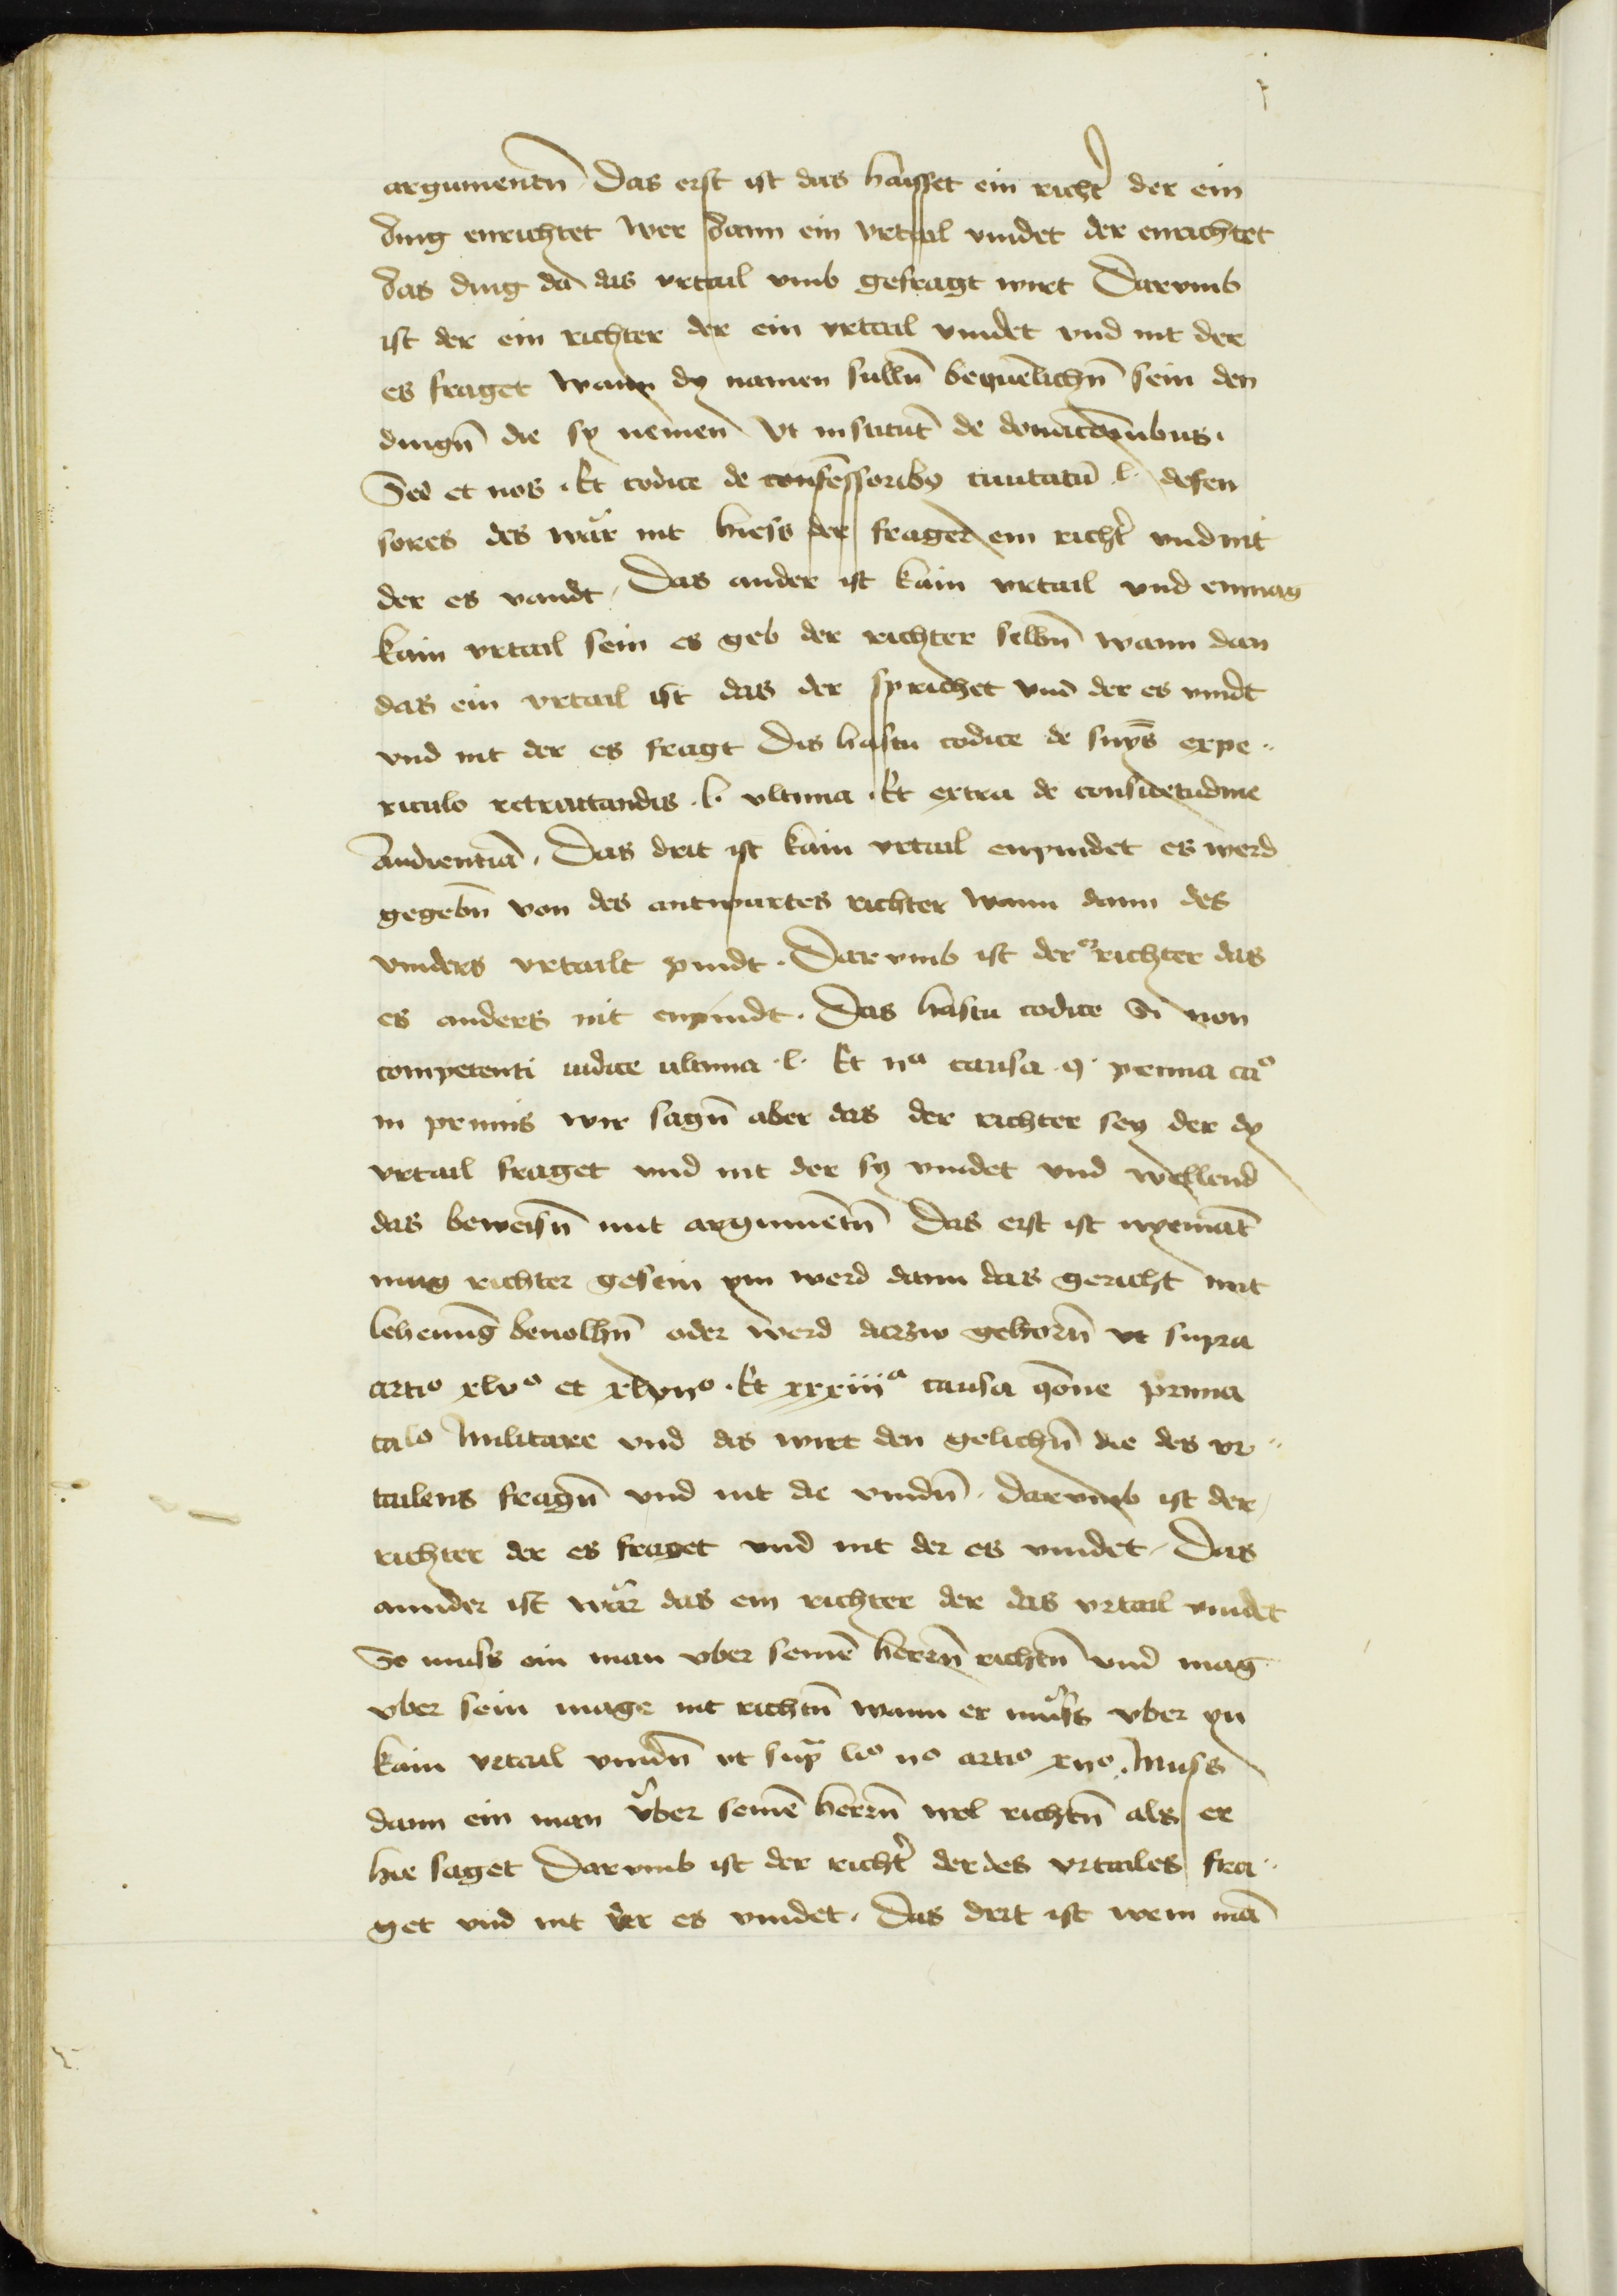 argumentñ Das erst ist das haisset ein richt̛ der ein
ding enrichtet wer dann ein vrtail vindet der enrichtet
das ding da das vrtail vmb gefragt wirt Darvmb
ist der ein richter der ein vrtail vindet vnd nit der
es fraget wann dy namen sullñ bequēlichñ sein den
dingñ die sy nemen Vt institut̄ de donacōnibus.
Sed et nos . Et codice de confēssoriby ciuitatū .l. defen
sores des wär nit hiess der fraget ein richt̛ vnd nit
der es vandt, Das ander ist kain vrtail vnd enmag
kain vrtail sein es geb der richter selbñ wann dan
das ein vrtail ist das der sprichet vnd der es vindt
vnd nit der es fragt Dis hastu codice de sniis̄ expe..
riculo retractandis .l. vltima . Et extra de consuetudine
Audientiā. Das drit ist kain vrtail enpindet es werd
gegebñ von des antwurtes richter wann dann des
vinders vrtailt pindt. Darvmb ist der er richter das
es anders nit enpindt. Das hastu codice Si non
competenti iudice vltima .l. Et ija causa .q. prima cao
in primis wir sagñ aber das der richter sey der dy
vrtail fraget vnd nit der sy vindet vnd wellend
das beweisñ mit argumētñ Das erst ist nyemāt
mug richter gesein ym werd dann das gericht mit
lehenug̃ beuolhñ oder werd darzw gekornñ vt supra
artio xlvo et xlvijo . Et xxxiiia causa qōne prima
calo Militare vnd dis wirt den gelichñ die des vr..
tailens fragñ vnd nit die vindñ. darvmb ist der
richter der es fraget vnd nit der es vindet. Das
annder ist wär das ein richter der das vrtail vindet
So muss ein man vber seinē herrñ richtñ vnd mag
vber sein mage nit richtñ wann er muͦss vber yn
kain vrtail vindñ vt supͣ lio ijo artio xijo. Muss
dann ein man vͤber seinē herrñ wol richtñ als er
hie saget Darvmb ist der richt̛ der des vrtailes fra..
get vnd nit der es vindet. Das drit ist wem mā